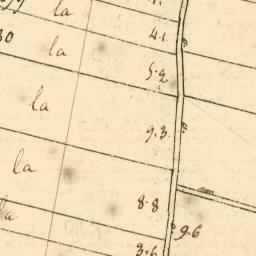 la
30 la 4.1
la 5.2
la 9.3
la 8.8
la 9.6
3.6